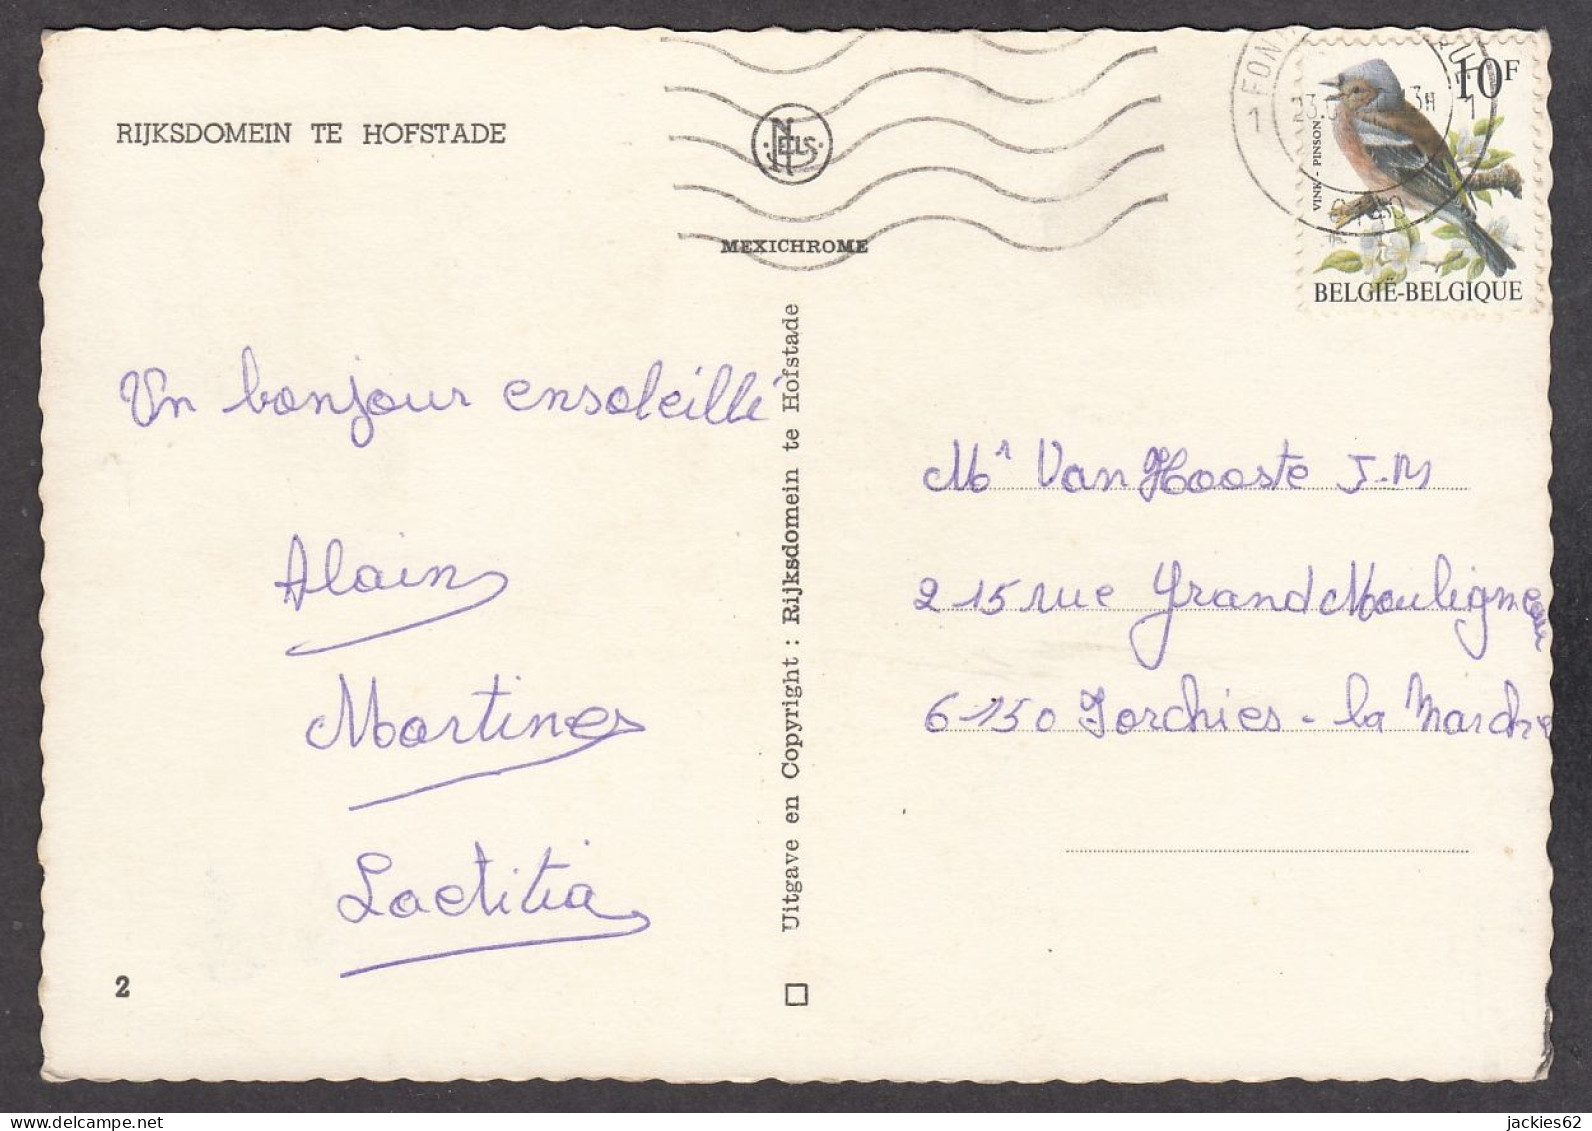 RIJKSDOMEIN TE HOFSTADE
NELS
MEXICHROME
1 FON
13H
1
6140
10F
VINK - PINSON
BELGIË-BELGIQUE
Un bonjour ensoleillé
Alain
Martine
Laetitia
2
Uitgave en Copyright : Rijksdomein te Hofstade
Mr Van Hooste J-M
215 rue Grand Mouligneau
6150 Forchies-la Marche
jackies62